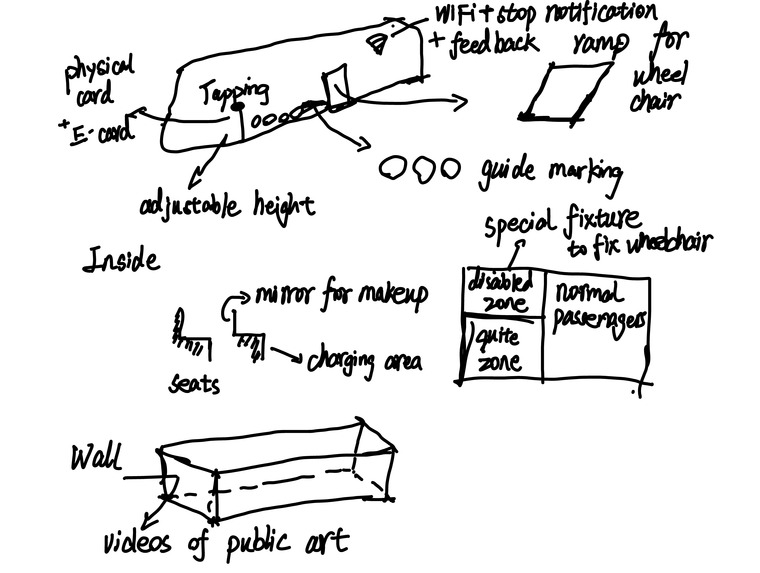 WiFi + stop notification
+ feedback
ramp for
wheel
chair
physical
card
+ E-card
Tapping
guide marking
adjustable height
special fixture
to fix wheelchair
Inside
mirror for makeup
charging area
seats
disabled
zone
normal
passenagers
quite
zone
Wall
videos of public art